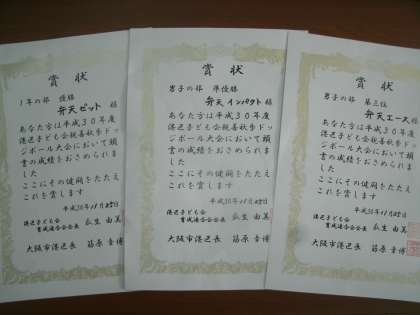 賞状
1年の部 優勝
弁天ビット 様
あなた方は平成30年度
港区子ども会親善秋季ドッ
ジボール大会において頭
書の成績をおさめられまし
た
ここにその健闘をたたえ
これを賞します
平成30年11月25日
港区子ども会
育成連合会会長 瓜生 由美
大阪市港区長 筋原 章博
賞状
男子の部 準優勝
弁天インパクト 様
あなた方は平成30年度
港区子ども会親善秋季ドッ
ジボール大会において頭
書の成績をおさめられまし
た
ここにその健闘をたたえ
これを賞します
平成30年11月25日
港区子ども会
育成連合会会長 瓜生 由美
大阪市港区長 筋原 章博
賞状
男子の部 第三位
弁天エース 様
あなた方は平成30年度
港区子ども会親善秋季ドッ
ジボール大会において頭
書の成績をおさめられまし
た
ここにその健闘をたたえ
これを賞します
平成30年11月25日
港区子ども会
育成連合会会長 瓜生 由美
大阪市港区長 筋原 章博